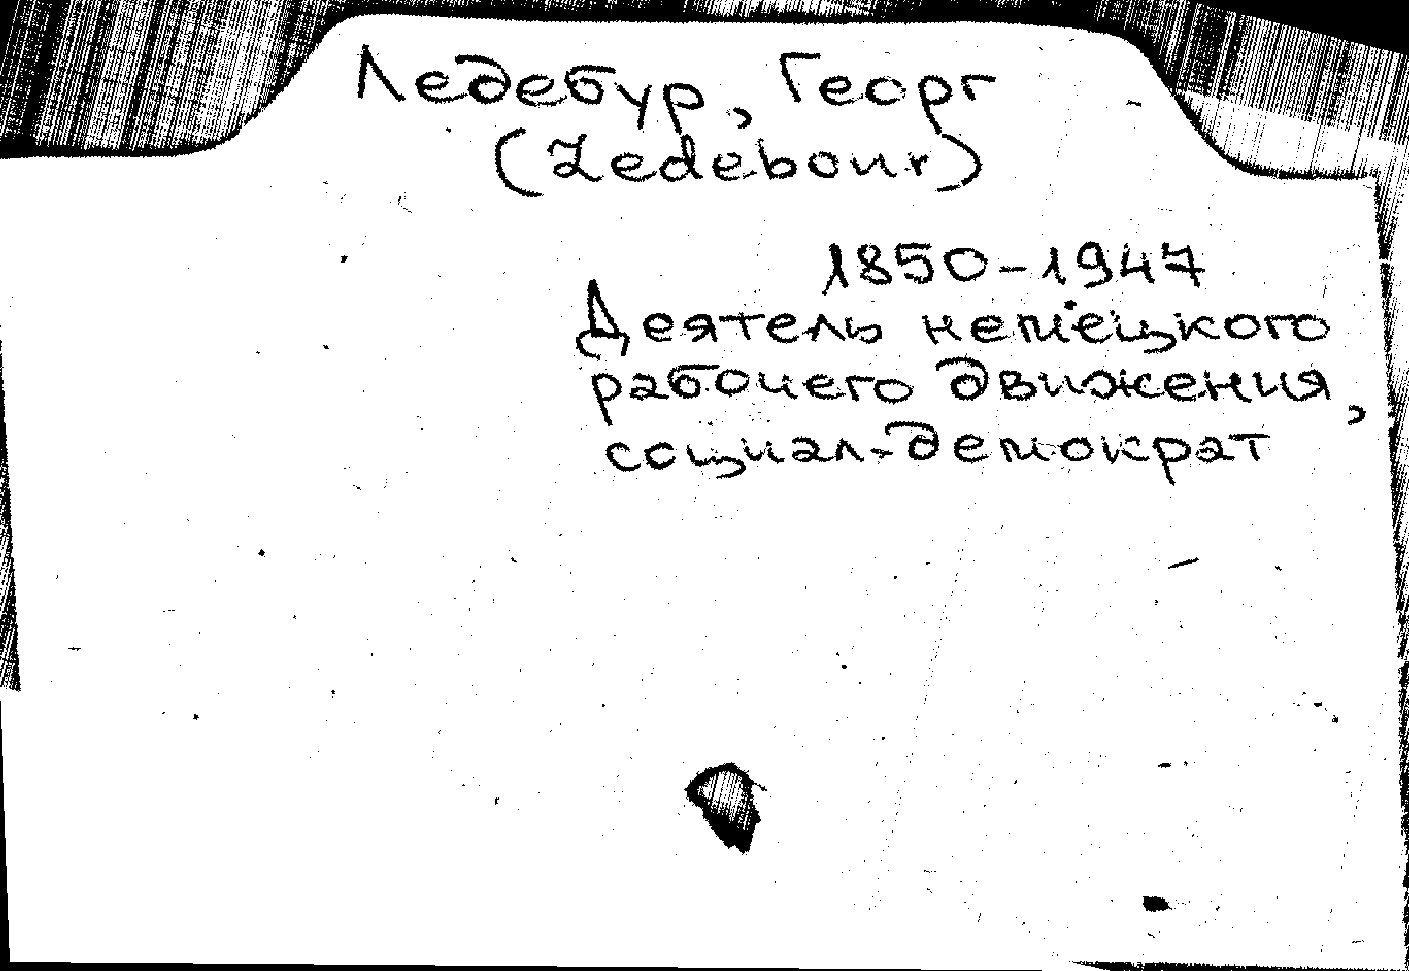 Ледебур, Георг
(Ledebour)
1850-1947
Деятель немецкого
рабочего движения,
социал-демократ